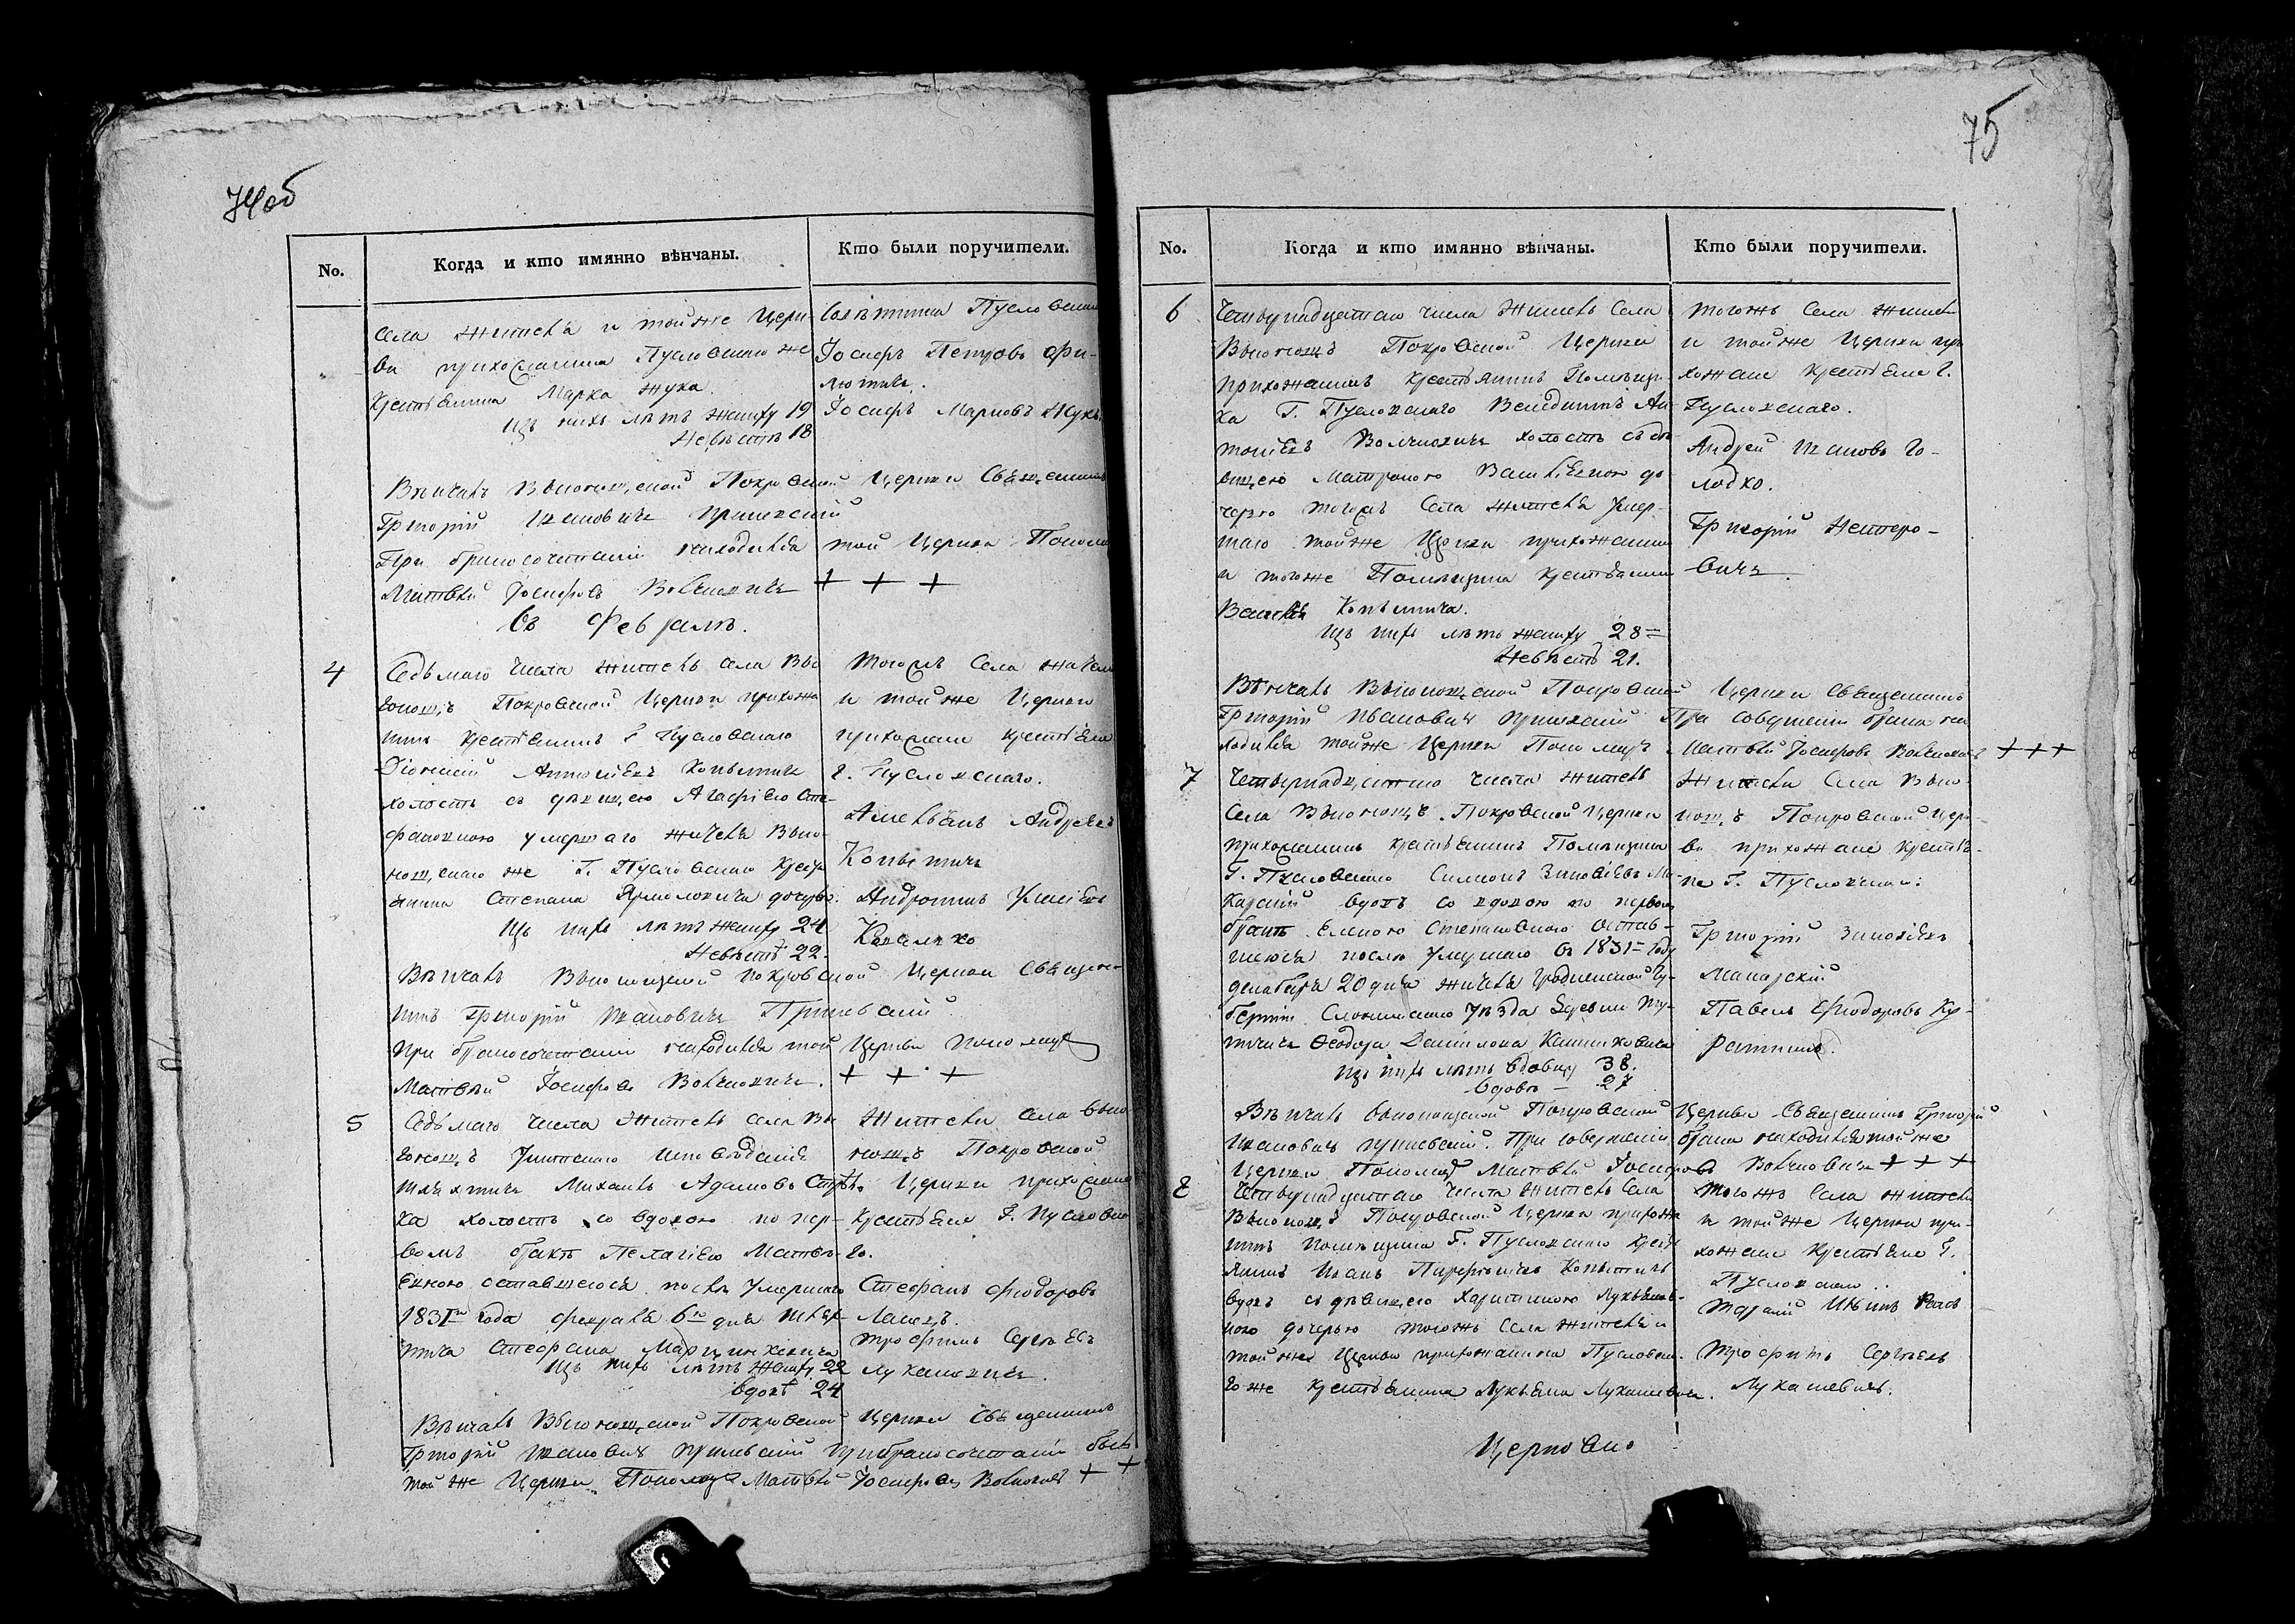 74об
No.
Когда и кто имянно вѣнчаны.
Кто были поручители.
села житела и той же Церк-
ви прихожанина Пусловскаго же
Крестьянина Марка Жука.
изъ нихъ лѣтъ жениху 19
Невѣстѣ 18
Пусловскаго
Іосифъ Петровъ Фи-
лютичь.
Іосифъ Марковъ Жукъ.
Вѣнчалъ Выгонощской Покровской Церкви Священникъ
Григорій Ивановичь
При бракосочетаніи находился той Церкви Пономарь
Матвей Іосифовъ + + +
въ Февралѣ.
4
Седьмаго числа житель села Вы-
гонощъ Покровской Церкви прихожа
нинъ крестьянинъ Г. Пусловскаго
Діонисій Антоніевъ Копытичь
холостъ съ дѣвицею Агафіею Сте-
фановною умершаго жителя Выго-
нощскаго же Г. Пусловскаго Крестья
янина Степана Ярмоловича дочерью.
Изъ нихъ лѣтъ жениху 24
Невѣстѣ 22.
тогожъ Села жители
и той же Церкви
прихожане крестьяне
Г. Пусловскаго.
Андреевъ
Копытичь
Вѣнчалъ Выгонощской Покровской Церкви Священ-
никъ Григорій Ивановичь
при бракосочетаніи находился той Церкви пономарь
Матвей Іосифовъ + + +
5
Седьмаго числа житель села Вы-
гонощъ Унитскаго исповѣданія
Михаилъ Адамовъ
ка холостъ со вдовою по пер-
вомъ бракѣ Пелагіею Матвѣ-
евною оставшеюся послѣ умершаго
1831го года Февраля 6го дня
Стефана Марцинкевича
Изъ нихъ лѣтъ жениху 22
вдовѣ 24
Жители села Выго-
нощъ Покровской
Церкви прихожане
Крестьяне Г. Пусловска-
го.
Стефанъ Феодоровъ
Трофимъ Сергѣевъ
Лукашевичь.
Вѣнчалъ Выгонощской Покровской Церкви Священникъ
Григорій Ивановичь при бракосочетаніи былъ
той же Церкви Пономарь Матвей Іосифовъ + +
75
No.
Когда и кто имянно вѣнчаны.
Кто были поручители.
6
Четвернадцатаго числа житель Села
Выгонощъ Покровской Церкви
прихожанинъ крестьянинъ Помѣщи-
ка Г. Пусловскаго Венедиктъ Ан-
тоніевъ холостъ съ дѣ-
вицею Матроною Васильевною до
черью тогожъ Села жителя Умер-
шаго той же Церкви прихожанина
и тогоже Помѣщика крестьянина
Василія Копытича.
изъ нихъ лѣтъ жениху 28
Невѣстѣ 21.
тогожъ Села жители
и той же Церкви при
хожане крестьяне Г.
Пусловскаго.
Андрей Ивановъ Го-
лодко.
Григорій Нестеро-
вичь.
Вѣнчалъ Выгонощской Покровской Церкви Священникъ
Григорій Ивановичь При совершеніи брака на
ходился той же Церкви Пономарь Матвей Іосифовъ + + +
7
Четвернадцатаго числа житель
Села Выгонощъ Покровской Церкви
прихожанинъ крестьянинъ Помѣщика
Г. Пусловскаго Симеонъ Зиновіевъ Ма-
карскій вдовъ со вдовою по первомъ
бракѣ Еленою Степановною остав-
шеюся послѣ умершаго въ 1831 году
декабря 20 дня жителя Гродненской Гу-
берніи Слонимскаго Уѣзда Деревни
Феодора Данилова
изъ нихъ лѣтъ вдовцу 38.
вдовѣ — 27
Жители Села Выго-
нощъ Покровской Церк-
ви прихожане крестья-
не Г. Пусловскаго:
Григорій Зиновіевъ
Макарскій
Павелъ Феодоровъ
Вѣнчалъ Выгонощской Покровской Церкви Священникъ Григорій
Ивановичь При совершеніи брака находился той же
Церкви Пономарь Матвей Іосифовъ + + +
8
Четвернадцатаго числа житель Села
Выгонощъ Покровской Церкви прихожа
нинъ помѣщика Г. Пусловскаго Кресть
янинъ Иванъ Копытичь
вдовъ съ дѣвицею Харитиною Лукьянов-
ною дочерью тогожъ села жителя и
той же Церкви прихожанина Пусловска-
го же крестьянина Лукьяна Лукашевича.
тогожъ Села жители
и той же Церкви при-
хожане крестьяне Г.
Пусловскаго:
Трофимъ Сергѣевъ
Лукашевичь.
Церковно